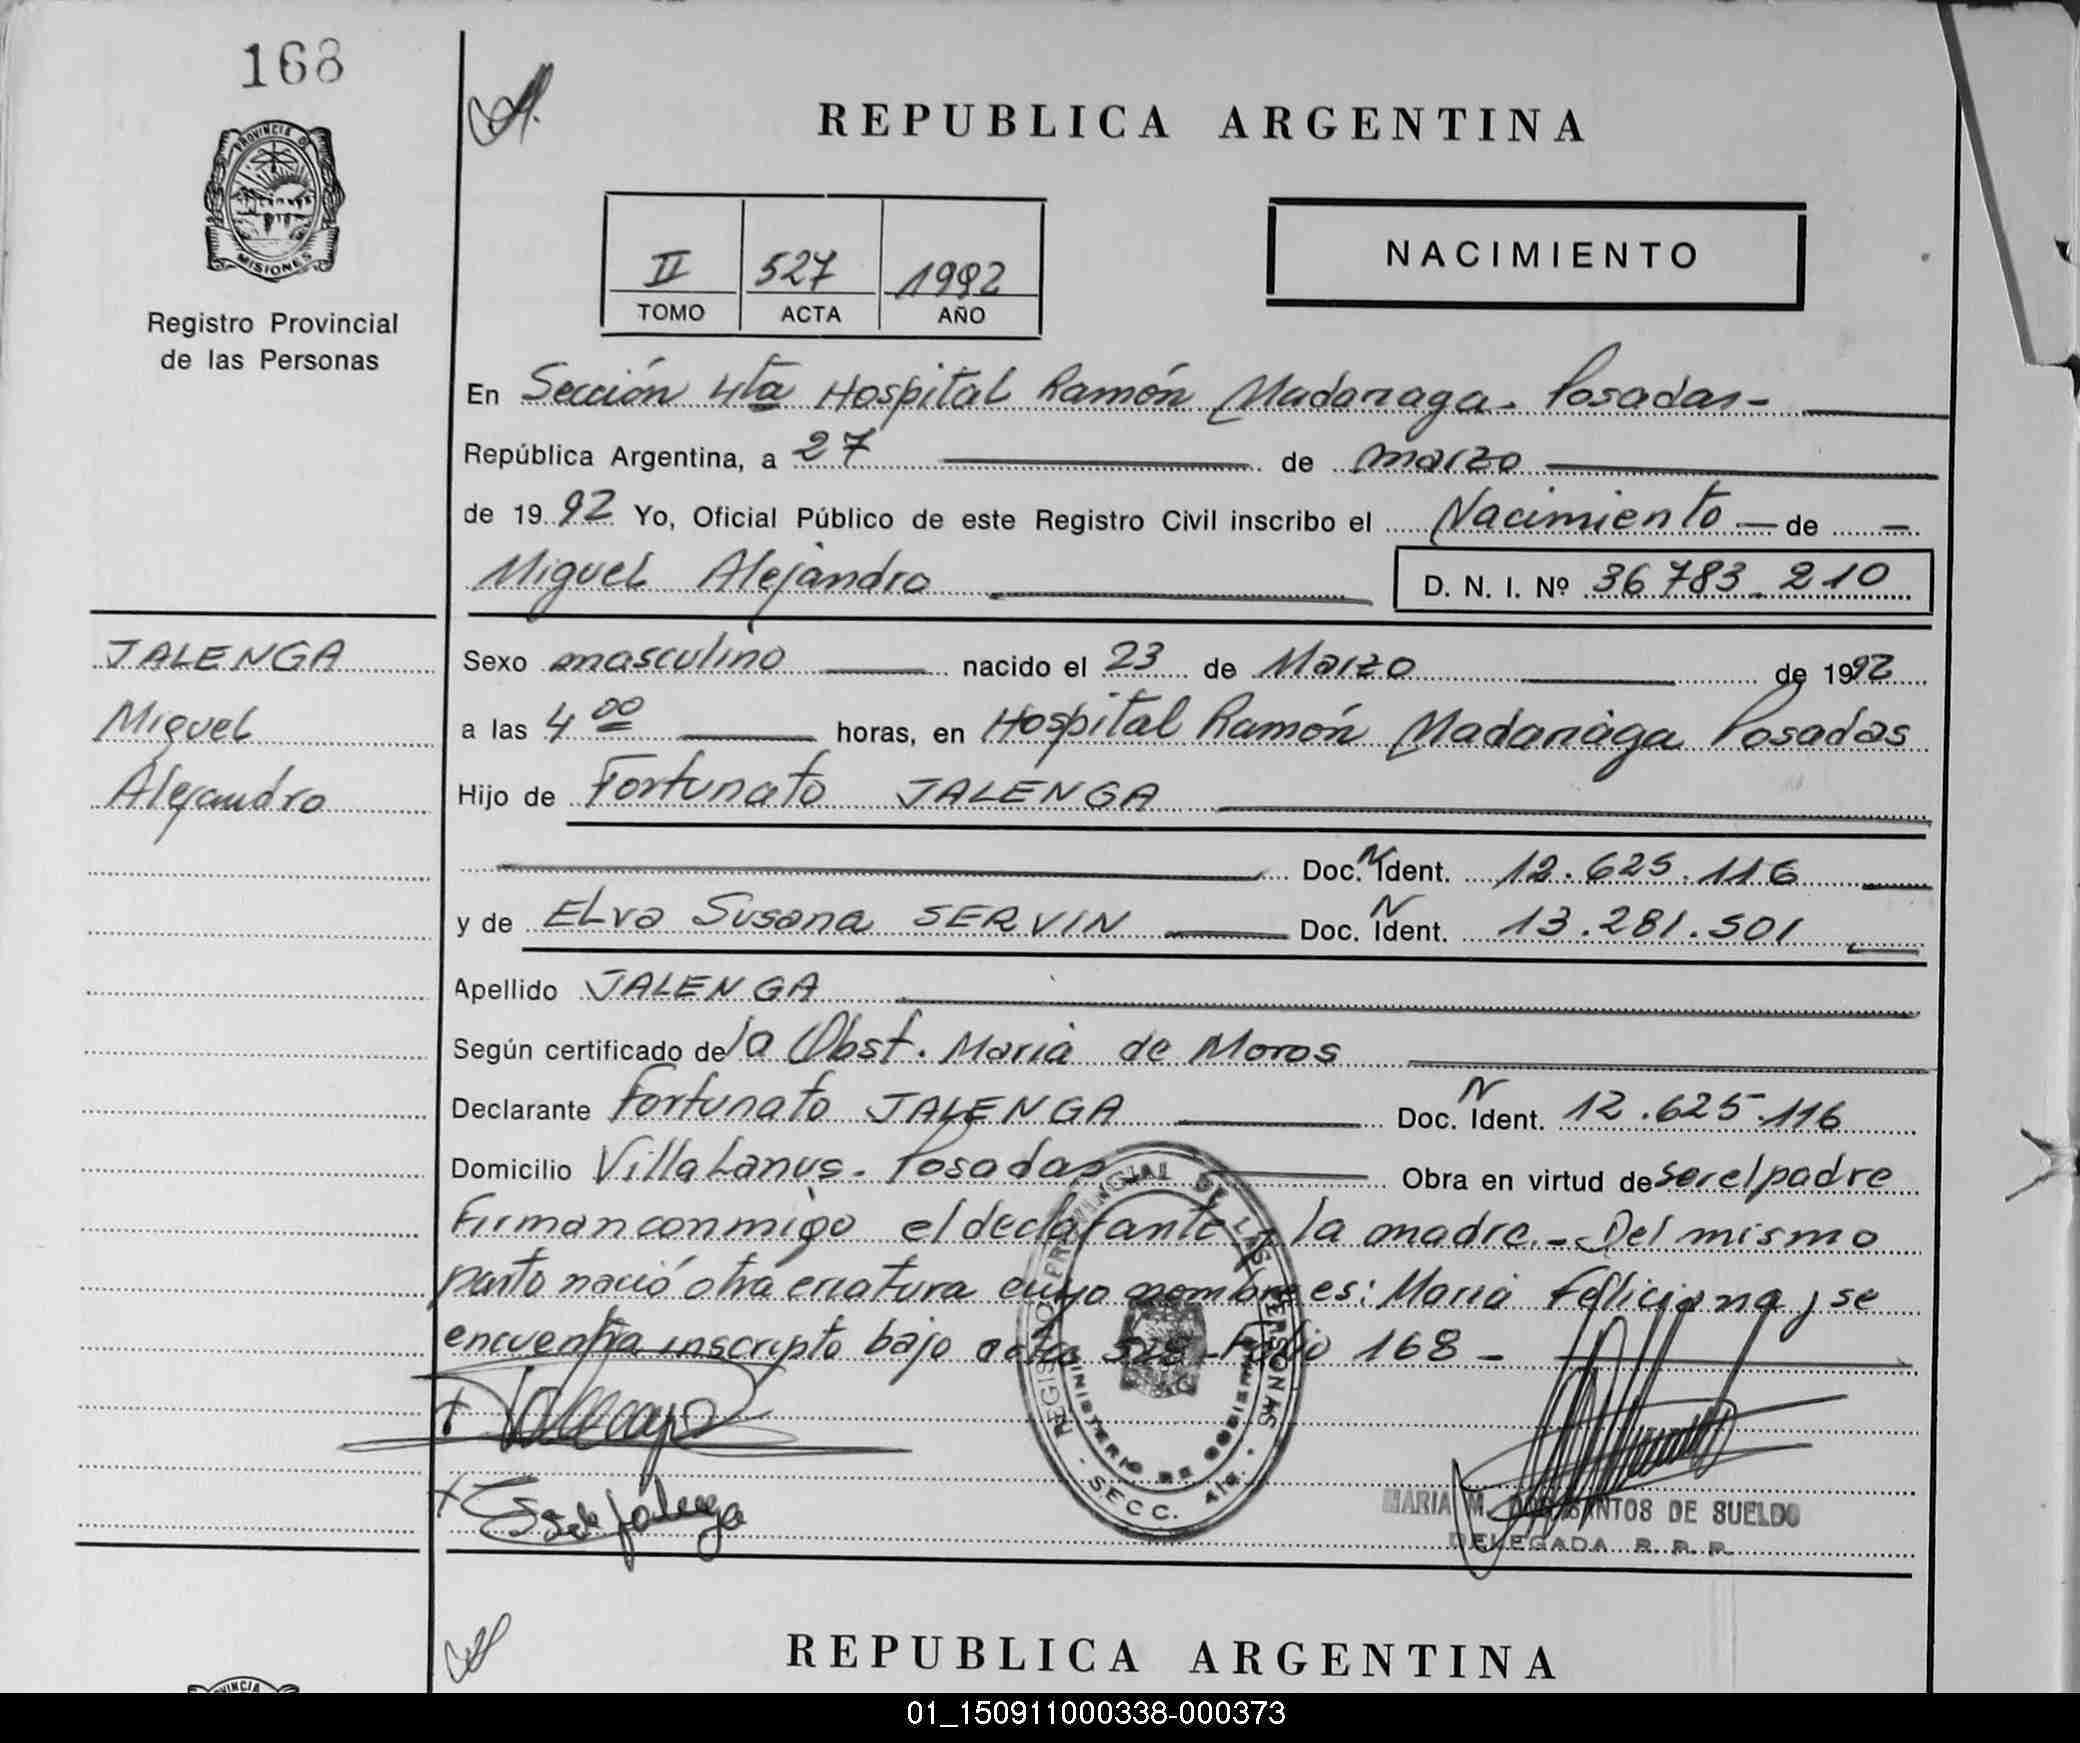 168
PROVINCIA DE
MISIONES
Registro Provincial
de las Personas
REPUBLICA ARGENTINA
II 527 1992
TOMO ACTA AÑO
NACIMIENTO
En Sección 4ta Hospital Ramón Madariaga. Posadas-
República Argentina, a 27 de marzo
de 1992 Yo, Oficial Público de este Registro Civil inscribo el Nacimiento de
Miguel Alejandro D. N. I. Nº 36 783.210
JALENGA
Miguel
Alejandro
Sexo masculino nacido el 23 de Marzo de 1992
a las 4 00 horas, en Hospital Ramón Madariaga Posadas
Hijo de Fortunato JALENGA
Doc. N Ident. 12.625.116
y de Elva Susana SERVIN Doc. N Ident. 13.281.501
Apellido JALENGA
Según certificado de la Obst. Maria de Moros
Declarante Fortunato JALENGA Doc. N Ident. 12.625.116
Domicilio Villa Lanus. Posadas Obra en virtud de ser el padre
Firman conmigo el declarante y la madre.- Del mismo
parto nació otra criatura cuyo nombre es: Maria Feliciana, se
encuentra inscripto bajo acta 528 - Folio 168 -
REGISTRO PROVINCIAL DE LAS PERSONAS
MINISTERIO DE GOBIERNO
- SECC. 4ta. -
MARIA M. DOS SANTOS DE SUELDO
DELEGADA R. P. P.
REPUBLICA ARGENTINA
VINCIA
01_150911000338-000373